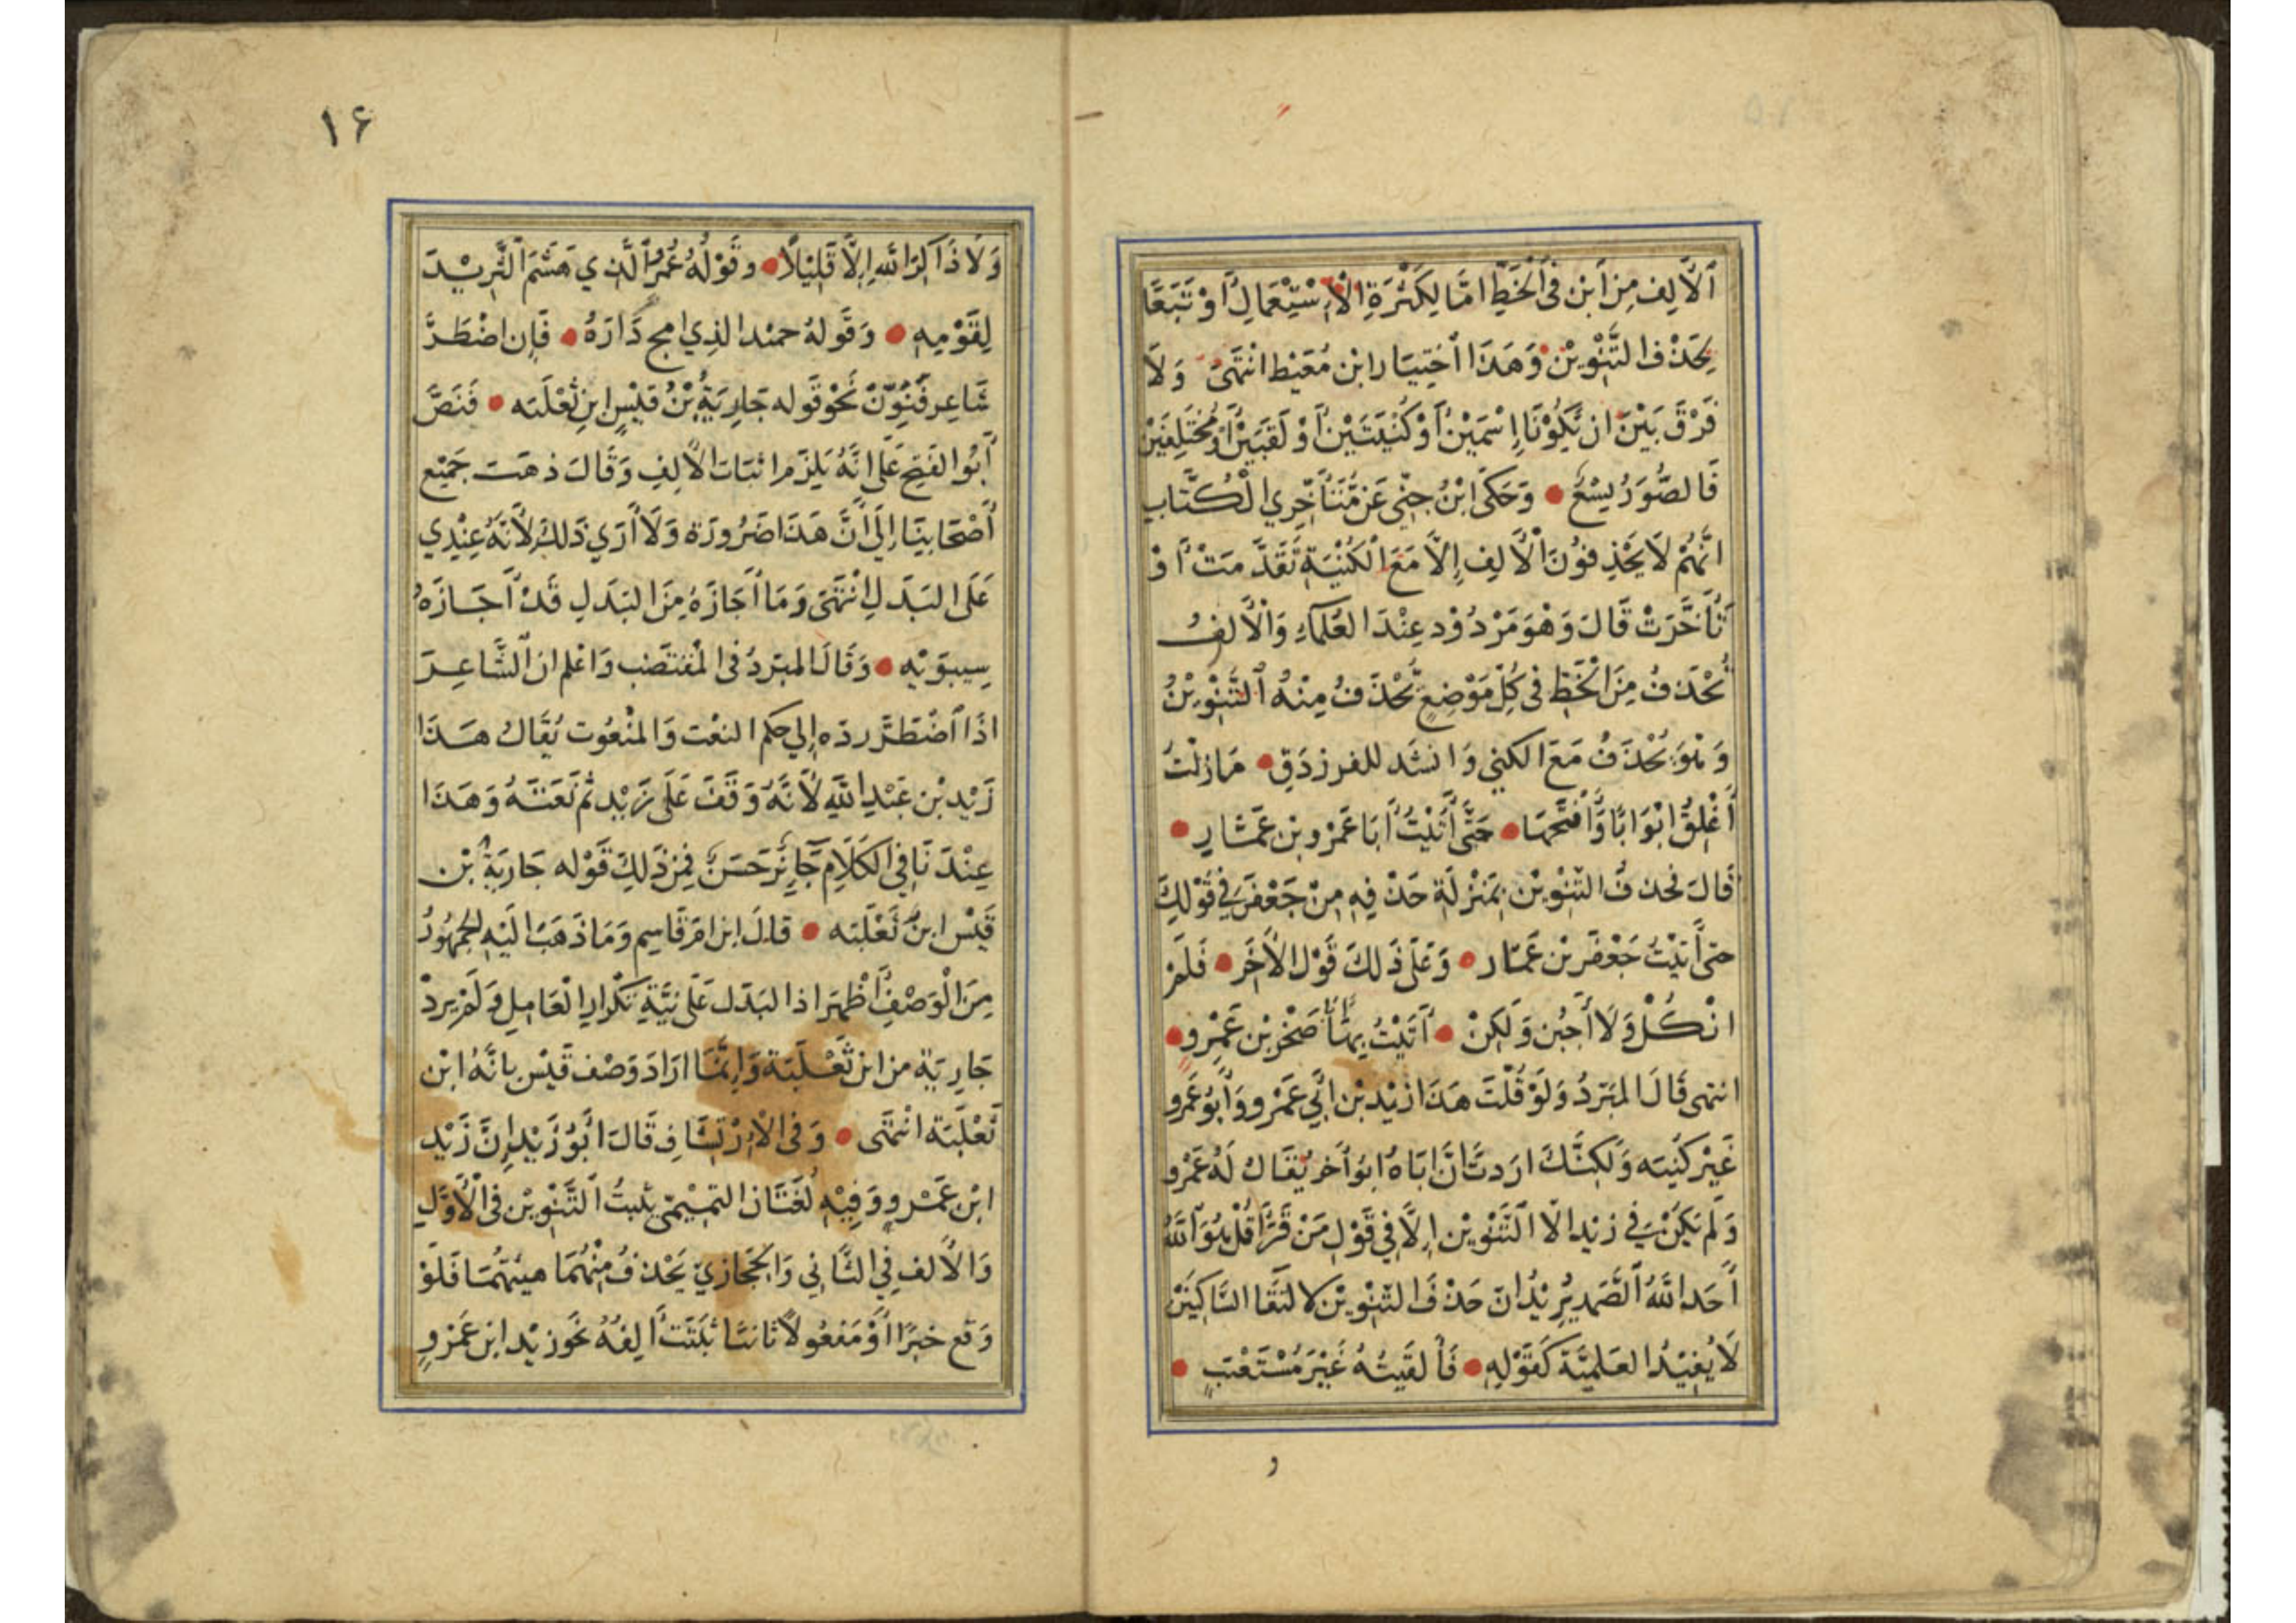 اَلْاَلِف مِن اَبْن فى اَلْخَطِّ امّا لِكَثْرَةِ الْاِسْتِعْمَالِ اَوْ تَبَعًا
بِحَذْف التَّنْوِيْن وَهَذَا اَخْتِيَار ابْن مُعْيَط انْتَهَىٰ وَلَا
فَرْقَ بَيْنَ ان تَكُوْنَا اِسْمَيْن اَوْ كُنْيَتَيْن اَوْ لَقَبَيْن اَوْمُخْتَلِفَيْن
فَالصُّوَرُ تِسْعٌ ● وَحَكَى ابْنُ جِنّى عَن مُتَأَخِّرِي الْكُتَّاب
انَّهُمْ لَا يَحْذِفُوْنَ اَلْاَلِف اِلَّا مَعَ اَلْكُنْيَةِ تَقَدَّمَتْ اَوْ
تَأَخَّرَتْ قَالَ وَهْوَ مَرْدُوْد عِنْدَ العُلَمَاءِ وَالْاَلِفُ
تُحْذَفُ مِنَ الْخَطِّ فى كُلِّ مَوْضِعٍ يُحْذَفُ مِنْهُ اَلتَّنْوِيْنُ
وَهْوَ يُحْذَفُ مَعَ الكنى وَانشَد للفرزدَقِ ● مَا زِلْتُ
اُغْلِقُ ابْوَابًا وَّاَفْتَحُهَا ● حَتَّى اَتَيْتُ اَبَا عَمْرو بْن عَمَّارِ ●
قَالَ فحذفُ التّنْوِيْن بِمَنْزِلَةِ حَذْفِهِ مِنْ جَعْفَرَ فِي قَوْلِكَ
حتى اَتَيْتُ جَعْفَرَ بْن عَمَّار ● وَعَلَى ذَلكَ قَوْل الْاٰخَرِ ● فَلَمْ
انْكُلْ وَلَا اَجْبُن وَلَكِنْ ● اَتَيْتُ بِهَا اَبَا صَخْرِ بْن عَمْرٍو ●
انتهى قَالَ المبَرّدُ وَلَوْ قُلْتَ هَذَا زَيْد بْن اَبِي عَمْرو وَاَبُوْ عَمْرو
غَيْر كُنْيَتِه وَلَكِنَّكَ ارَدتَ اَنَّ اَبَاهُ ابوُ اٰخَر يُقَالُ لَهُ عَمْرو
وَلَم يَكُنْ فِي زَيْد اِلّا التَّنْوِيْن اِلَّا فِي قَوْلِ مَنْ قَرَأَ قُلْ هُوَ اَللّٰهُ
اَحَد اللّٰهُ اَلصَّمَد يُرِيْدُ انَ حَذْفَ التّنْوِيْن لالتِقَا السَّاكِنَيْن
لَا يُفِيْدُ العَلَمِيَّةَ كَقَوْلِهِ ● فَأَلْفَيْتُهُ غَيْرَ مُسْتَعْتَبٍ ●
و
١۶
وَلَا ذَاكِرَ اللهِ اِلَّا قَلِيْلًا ● وقَوْلُهُ عَمْرو اَلَّذِي هَشَمَ اَلثَّرِيْدَ
لِقَوْمِهِ ● وَقَولهُ حميد الذِي امج دَارَهُ ● فَإِن اضْطَرَّ
شَاعِر فَنَوَّنَ نَحْوَ قَوله جَارِيَةٌ بْنُ قَيْسٍ ابنِ ثَعْلَبَه ● فَنَصَّ
اَبُوا الفَتحِ عَلَى انَّهُ يَلْزَم اثبَات الْاَلِفِ وَقَالَ ذهَبَ جَمِيْع
اَصْحَابِنَا اِلَى اَنَّ هَذَا ضَرُورَة وَلَا اَرَي ذَلِكَ لِاَنَّهُ عِنْدِي
عَلَى البَدَلِ انْتَهَى وَمَا اَجَازَهُ مِنَ البَدَلِ قَدْ اَجَازَهُ
سِيبوَيْهِ ● وَقَالَ المبَردُ فى المُقتَضَب وَاعْلَم انَ اَلشَّاعِرَ
اذَا اَضْطَرَّ ردّه اِلي حكم النعْت وَالمنْعُوت يُقَالُ هَذَا
زَيْد بْن عَبْدِ اللّٰهِ لِاَنَّهُ وَقَفَ عَلَى زَيْد ثُم نَعَتَهُ وَهَذَا
عِنْدَنَا فِي الكَلَامِ جَايِزٌ حَسَنٌ فَمِن ذَلِكَ قَوْله جَارِيَةٌ بْن
قَيْسٍ ابنُ ثَعْلَبَه ● قالَ ابْن امّ قَاسِمٍ وَمَا ذَهَبَ الَيْهِ الجُمْهُورُ
مِنَ الْوَصْفِ اَظْهَر اذا البَدَل عَلَى نِيَّةِ تَكْرَارِ الْعَامِلِ وَلَمْ يرِدْ
جَارِيَة من ابن ثَعْلَبَة وَاِنَّمَا ارَادَ وَصْف قَيْس بانَّهُ ابْن
ثَعْلَبَة انْتَهَى ● وَفى الْاِرْتِشَافِ قَالَ اَبُوْ زَيْدِ اِنَّ زَيْد
ابْن عَمْرٍو وَفِيْهِ لُغَتَان التمِيْميّ يثبتُ اَلتَّنْوِيْن فى الْاَوَّلِ
وَالْاَلف فِي الثَّاني وَالحِجَازيّ يَحْذفُ مِنْهُمَا فَلَوْ
وَقع خبَرًا اَوْ مَفعُولًا ثانيًا ثبَتَتْ اَلِفُهُ نحْو زَيْد ابْن عَمْرٍو